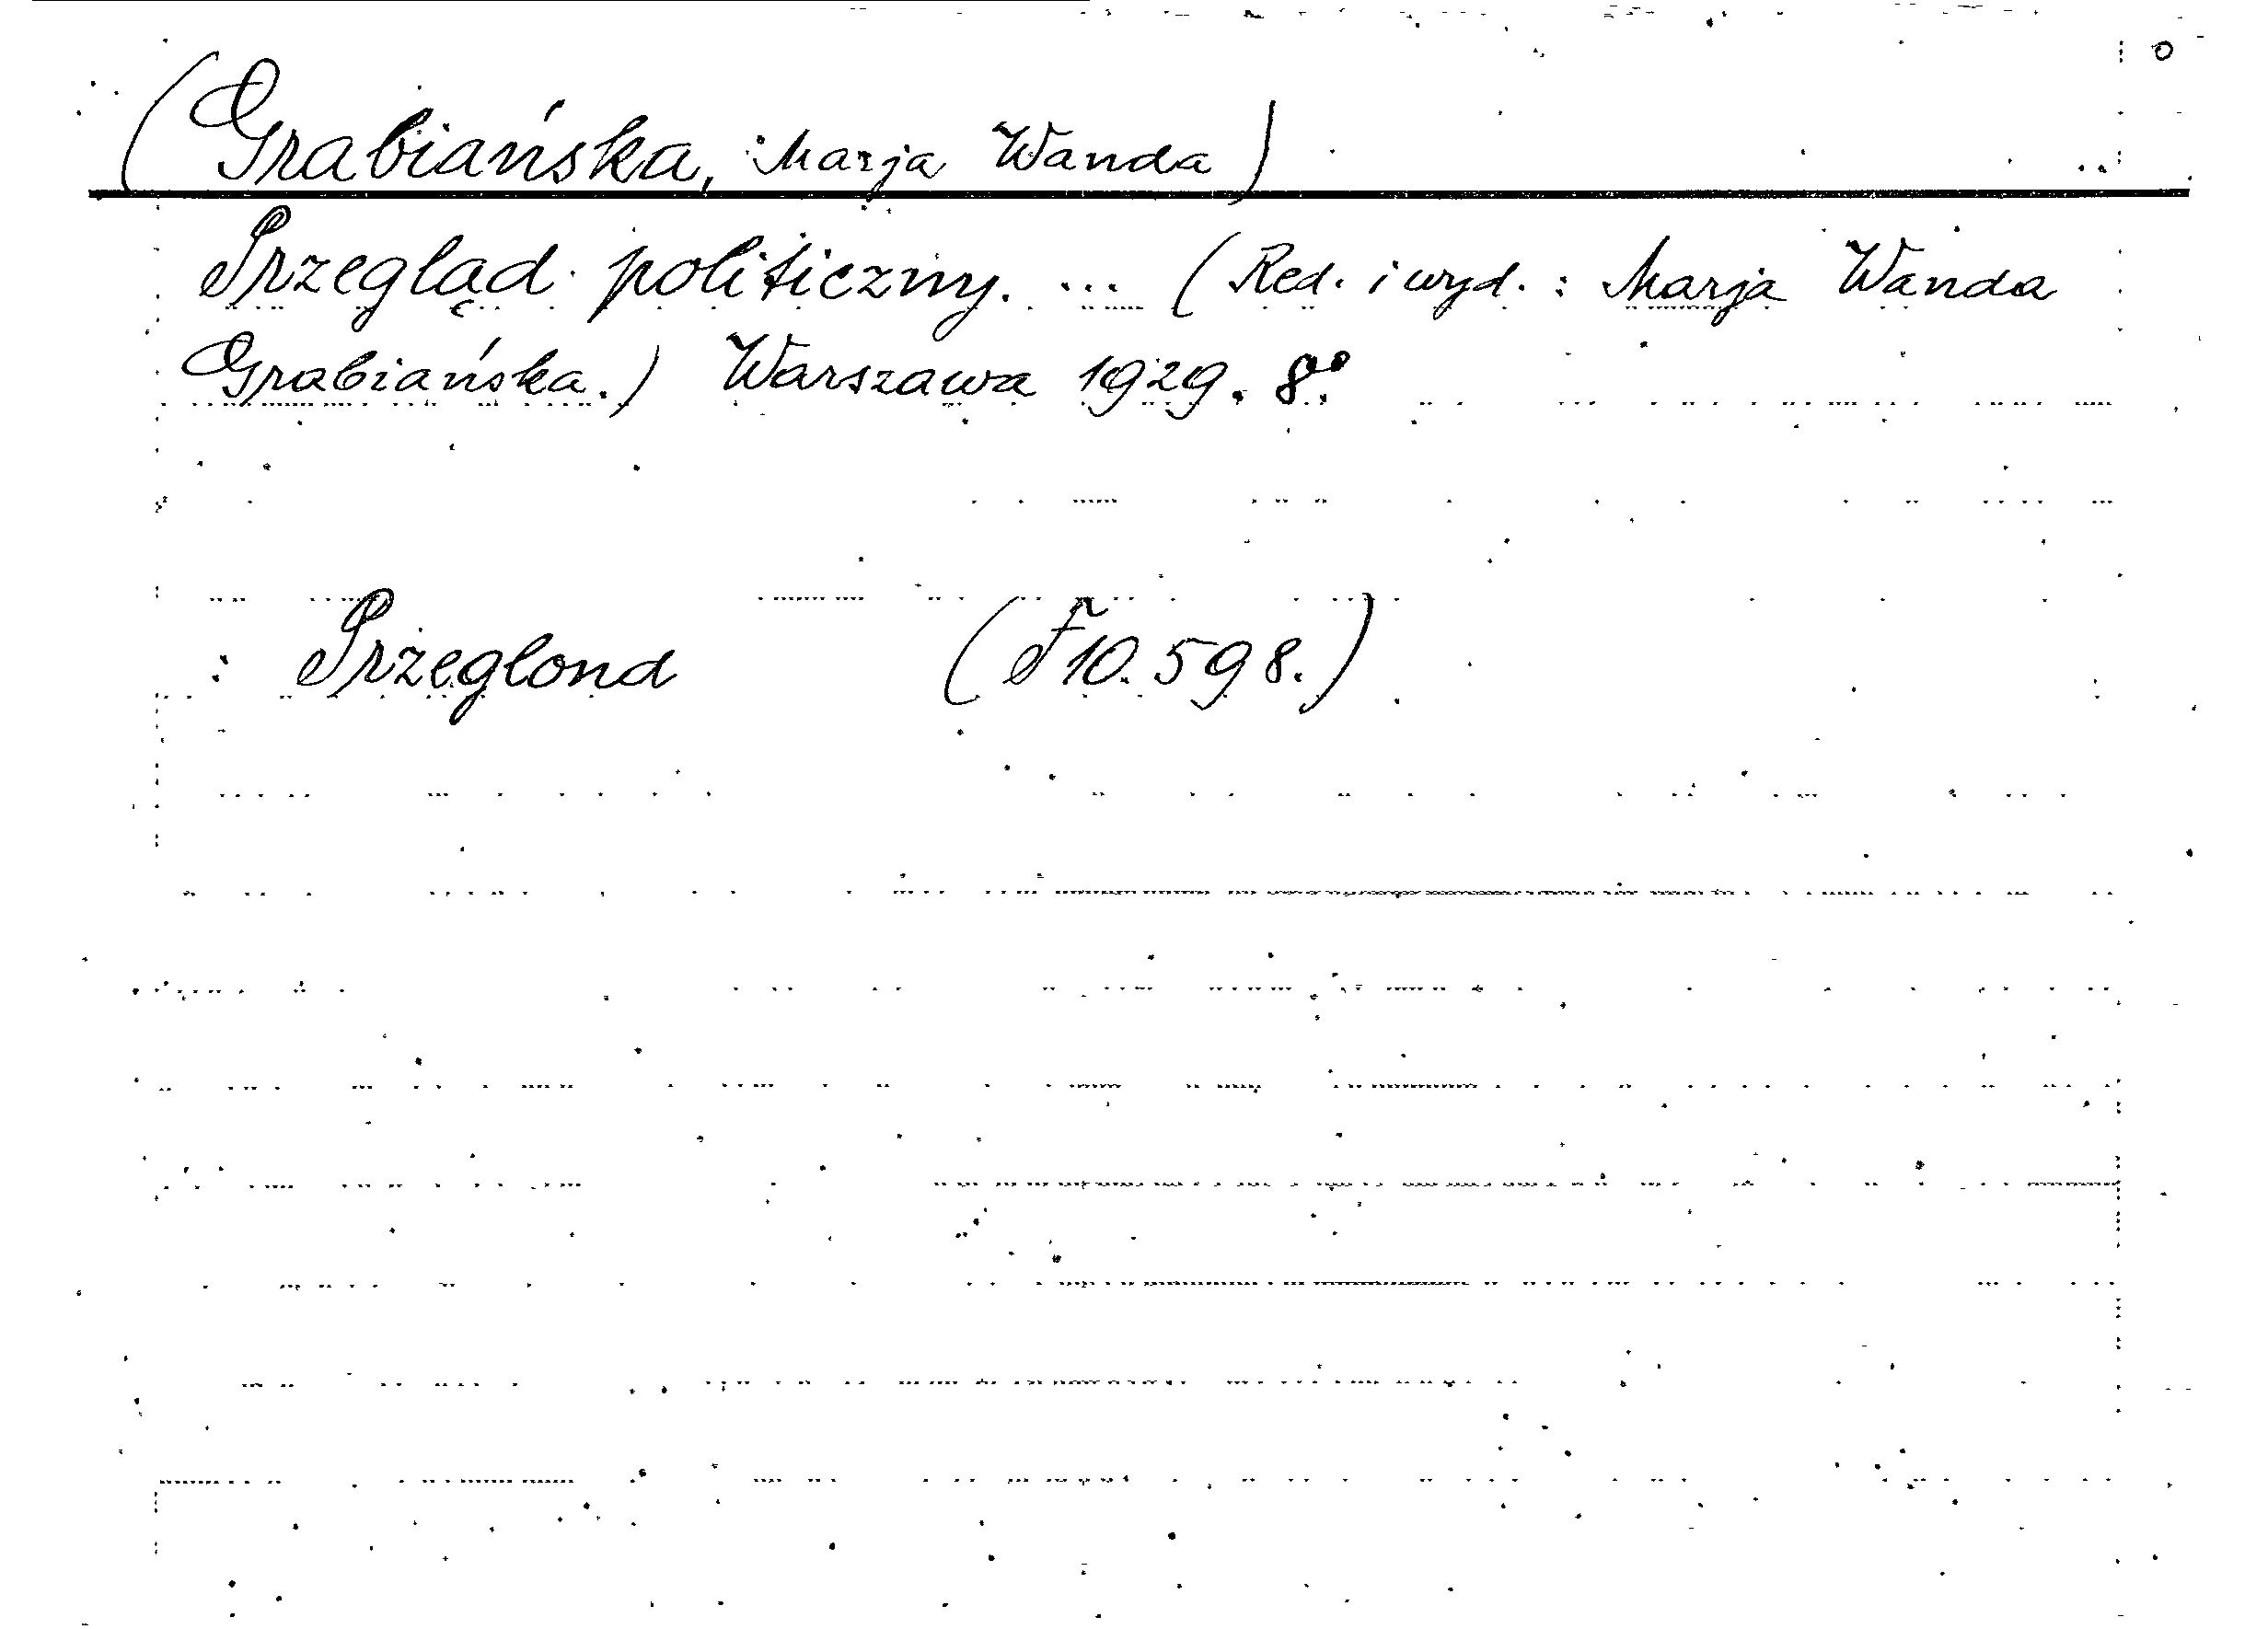 (Grabiańska, Marja Wanda)
Przegląd politiczny. ... (Red. i wyd.: Marja Wanda
Grabiańska.) Warszawa 1929. 8°.
: Przeglond (F 10.598.)